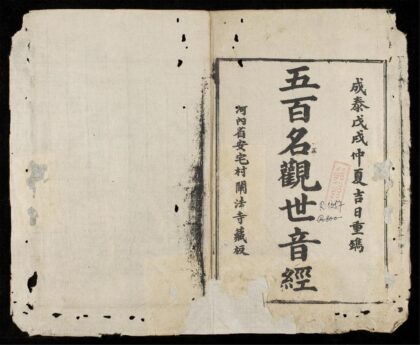 成泰戊戌仲夏吉日重鐫
五百名觀世音經
河內省安宅村闡法寺藏板